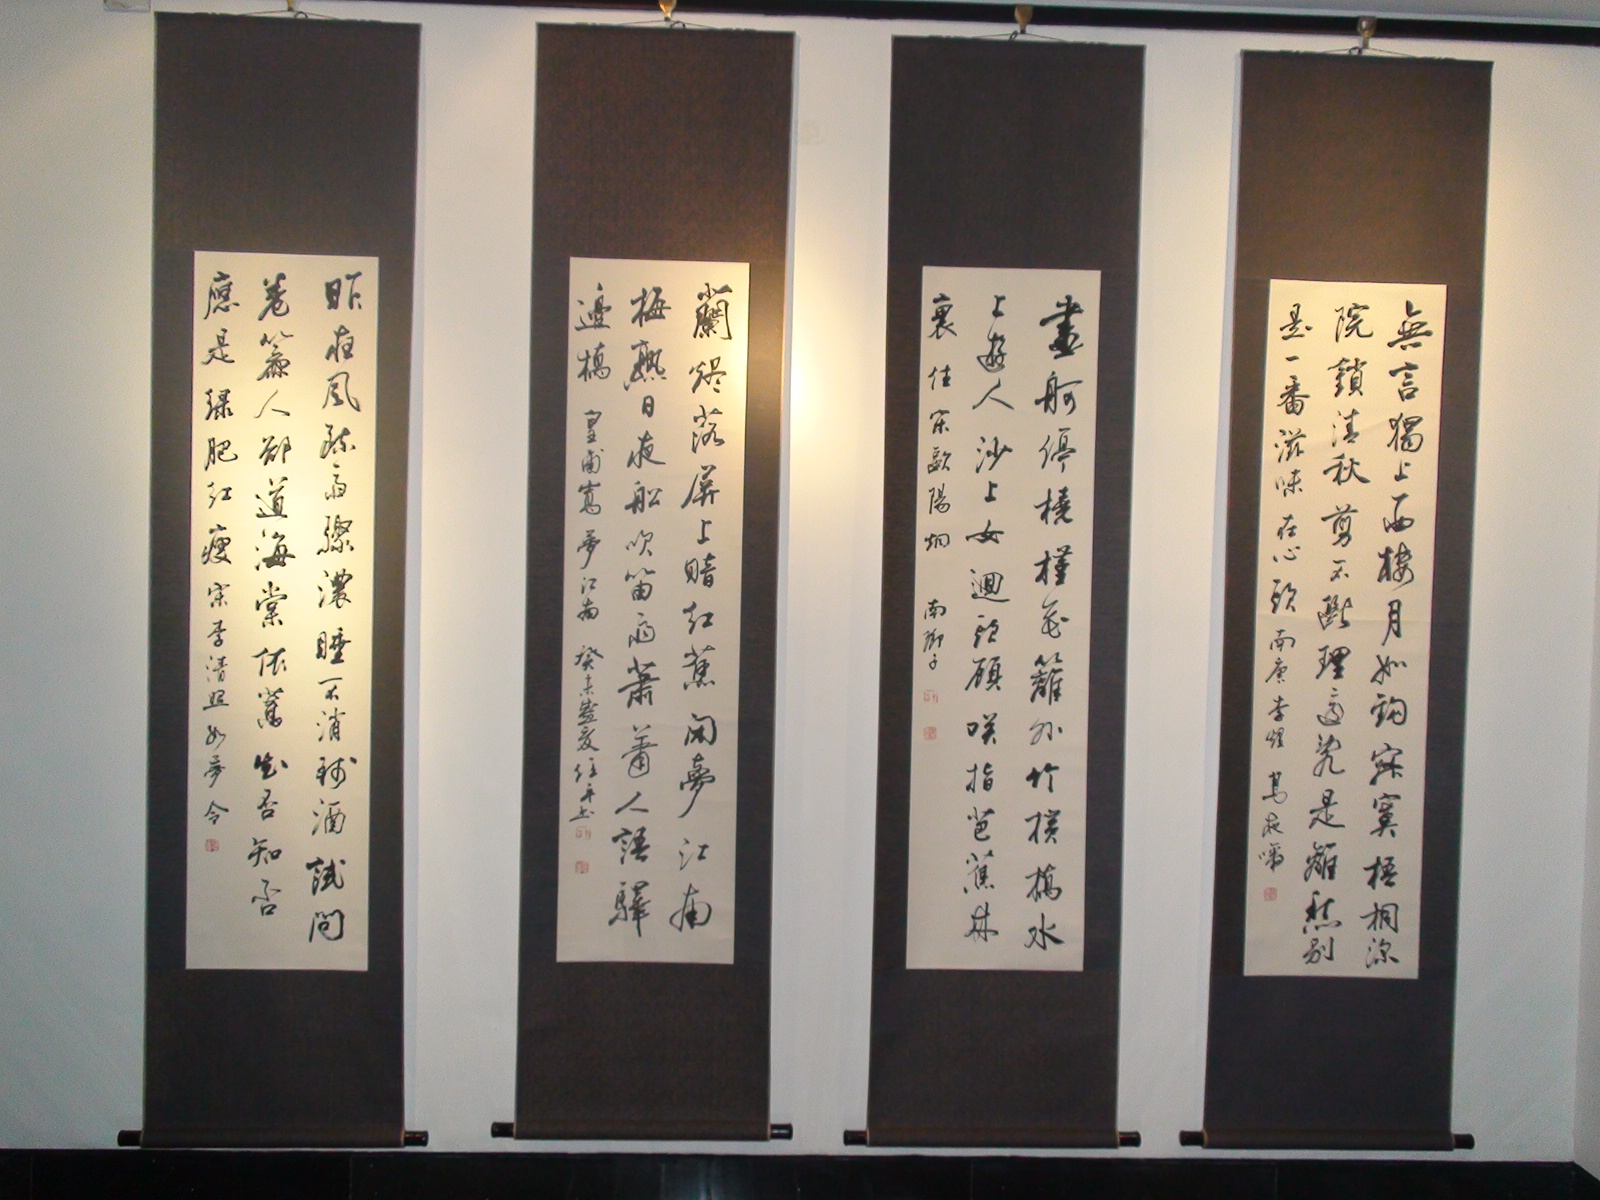 無言獨上西樓月如鈎寂寞梧桐深
院鎖清秋剪不斷理還亂是離愁別
是一番滋味在心頭 南唐李煜 烏夜啼
畫舸停橈槿花籬外竹橫橋水
上遊人沙上女迴頭顧咲指芭蕉林
裏住 宋歐陽炯 南鄉子
蘭燼落屏上暗紅蕉閑夢江南
梅熟日夜船吹笛雨蕭蕭人語驛
邊橋 皇甫嵩夢江南 癸未盛夏任平书
昨夜風疏雨驟濃睡不消殘酒試問
卷簾人卻道海棠依舊知否知否
應是緑肥紅瘦 宋李清照如夢令